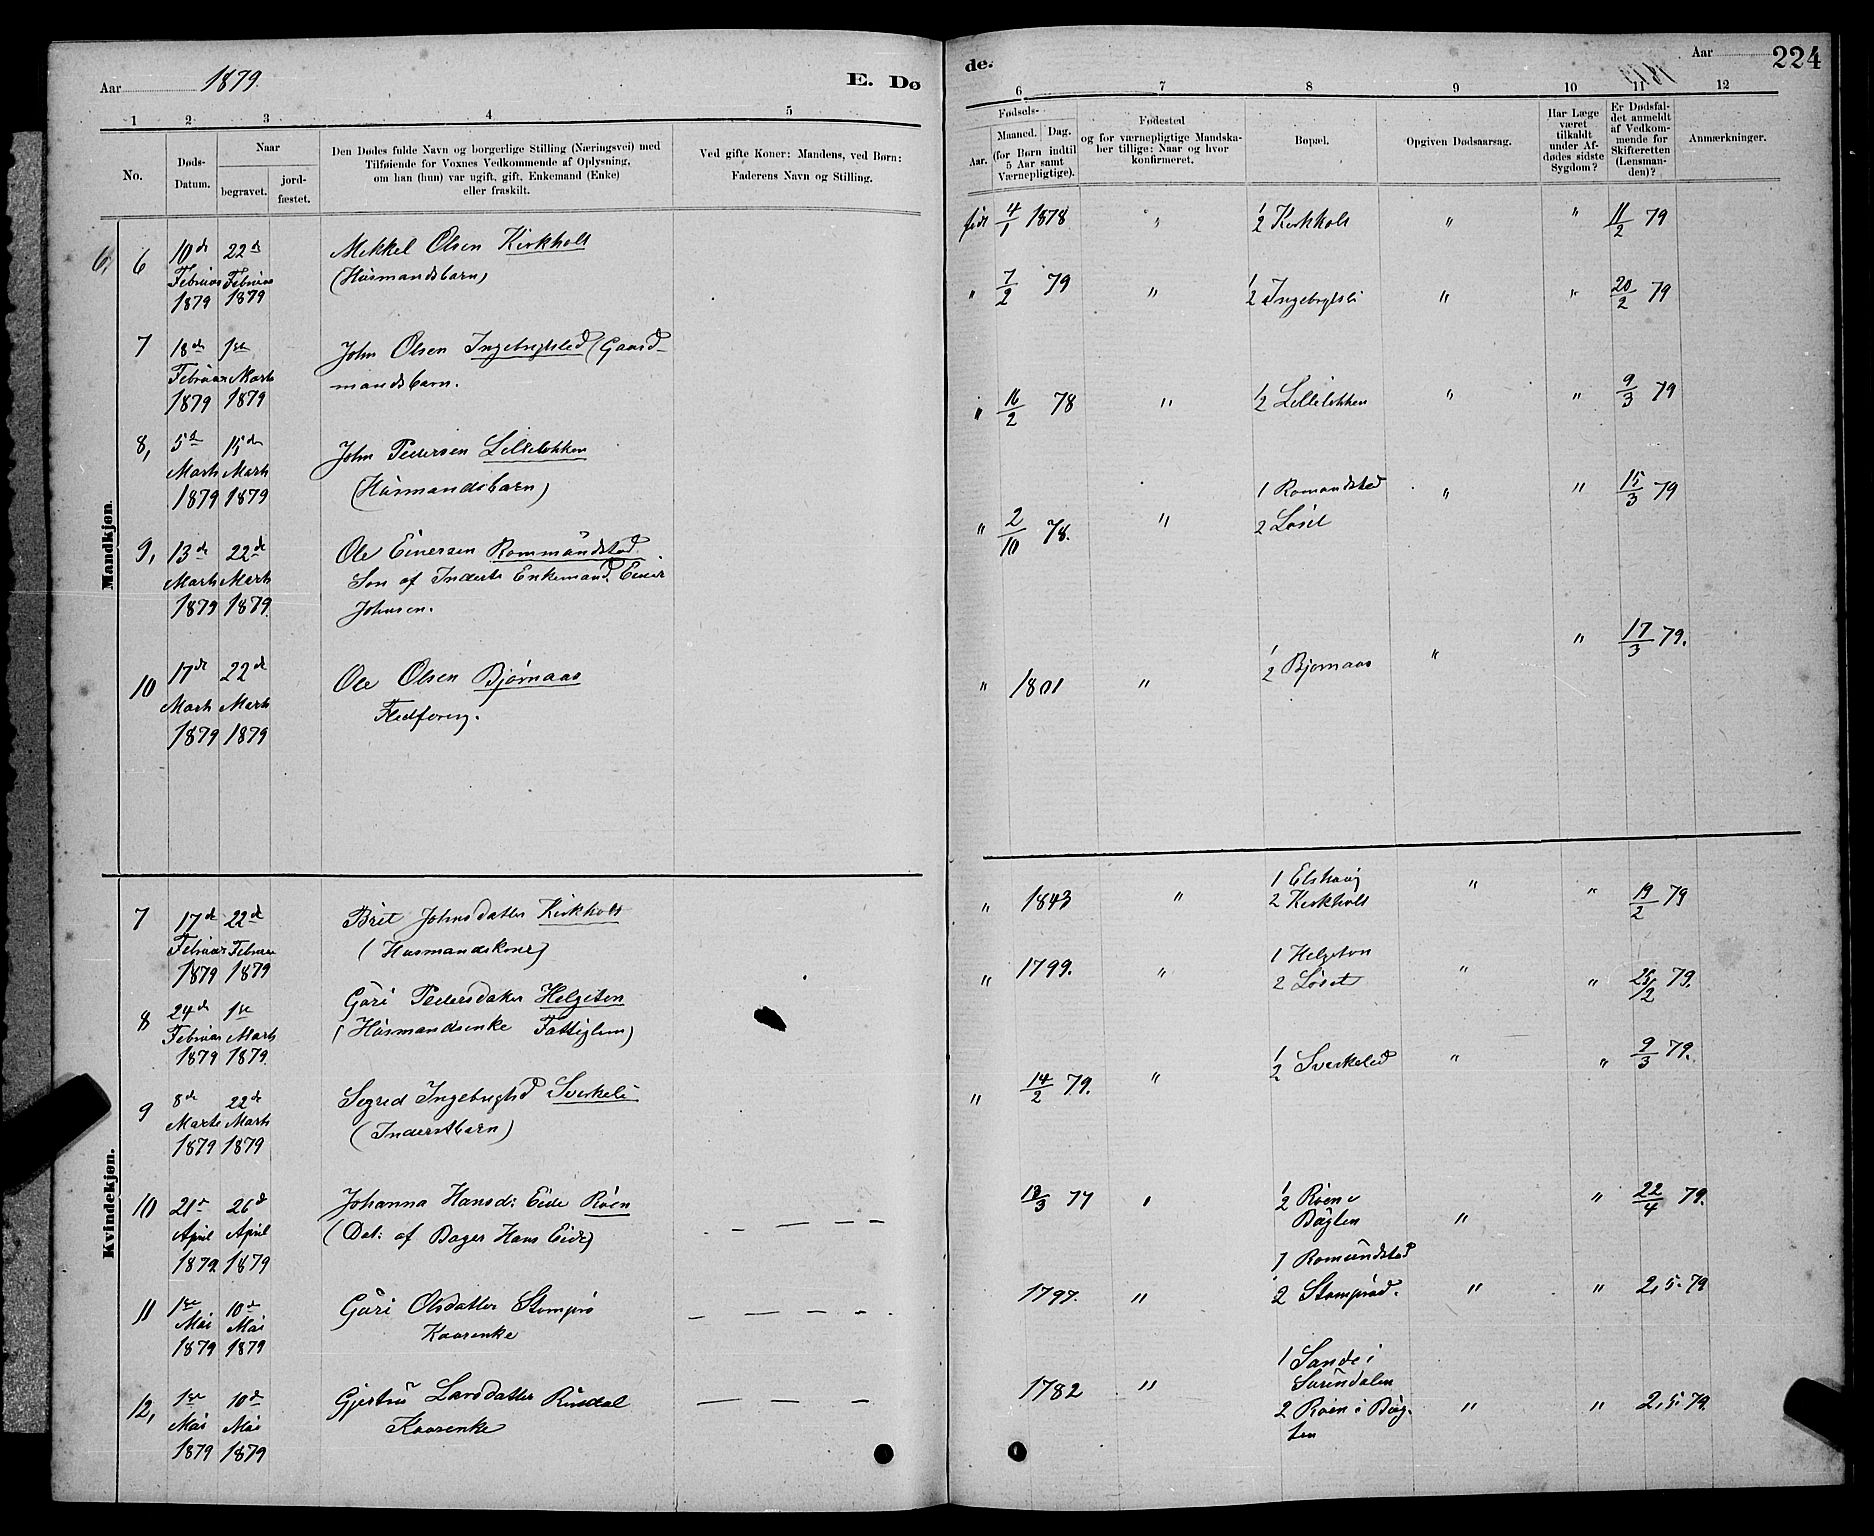 Aar 1879.
E. Dø
1 2 3 4 5
No.
Døds-
Datum.
Naar
begravet.
jord-
fæstet.
Den Dødes fulde Navn og borgerlige Stilling (Næringsvei) med
Tilføiende for Voxnes Vedkommende af Oplysning,
om han (hun) var ugift, gift, Enkemand (Enke)
eller fraskilt.
Ved gifte Koner: Mandens, ved Børn:
Faderens Navn og Stilling.
Mandkjøn.
6, 6 10de 22de Mekkel Olsen Kirkholt
Februar Februar (Husmandsbarn)
1879 1879
7 18de 1ste John Olsen Ingebrigtsled (Gaard-
Februar Marts mandsbarn.
1879 1879
8, 5te 15de John Pedersen Lilleløkken
Marts Marts (Husmandsbarn)
1879 1879
9, 13de 22de Ole Einersen Rommundstad
Marts Marts Søn af Inderst Enkemand Einer
1879 1879 Johnsen.
10 17de 22de Ole Olsen Bjørnaas
Marts Marts Fledføring.
1879 1879
Kvindekjøn.
7 17de 22de Brit Johnsdatter Kirkholt
Februar Februar (Husmandskone)
1879 1879
8 24de 1ste Guri Pedersdatter Helgeton
Februar Marts (Husmandsenke Fattiglem)
1879 1879.
9 8de 22de Sigrid Ingebrigtsd Sverkeli
Marts Marts (Inderstbarn)
1879 1879
10 21de 26de Johanna Hansd: Eide Røen
April April (Dat: af Bager Hans Eide)
1879 1879
11 1ste 10de Guri Olsdatter Stomprø
Mai Mai Kaarenke
1879 1879
12, 1ste 10de Gjertru Larsdatter Rindal
Mai Mai Kaarenke
1879 1879
de.
Aar 224
6 7 8 9 10 11 12
Fødsels-
Aar.
Maaned. Dag.
(for Børn indtil
5 Aar samt
Værnepligtige).
Fødested
og for værnepligtige Mandska-
ber tillige: Naar og hvor
konfirmeret.
Bopæl.
Opgiven Dødsaarsag.
Har Læge
været
tilkaldt
under Af-
dødes sidste
Sygdom?
Er Dødsfal-
det anmeldt
af Vedkom-
mende for
Skifteretten
(Lensman-
den)?
Anmærkninger.
født 4/1 1878 " 1/2 Kirkholt " " 11/2 79
" 7/2 79 " 1/2 Ingebrigtsli " " 20/2 79
" 16/2 78 " 1/2 Lilleløkken " " 9/3 79
" 2/10 78. " 1 Romundstad " " 15/3 79
2 Løset
" 1801 " 1/2 Bjørnaas " " 17/3 79.
" 1843 " 1 Elshaug " " 19/2 79
2 Kirkholt
" 1799. " 1 Helgeton
2 Løset " " 25/2 79.
" 14/2 79. " 1/2 Sverkeled " " 9/3 79.
13/3 77 " 1/2 Røen i " " 22/4 79.
Bøgten
1797. " 1 Romundstad
2 Stomprød. " " 2,5. 79
1782 " 1 Sande i
Surendalen
2 Røen i Bøg- " " 2,5. 79.
ten